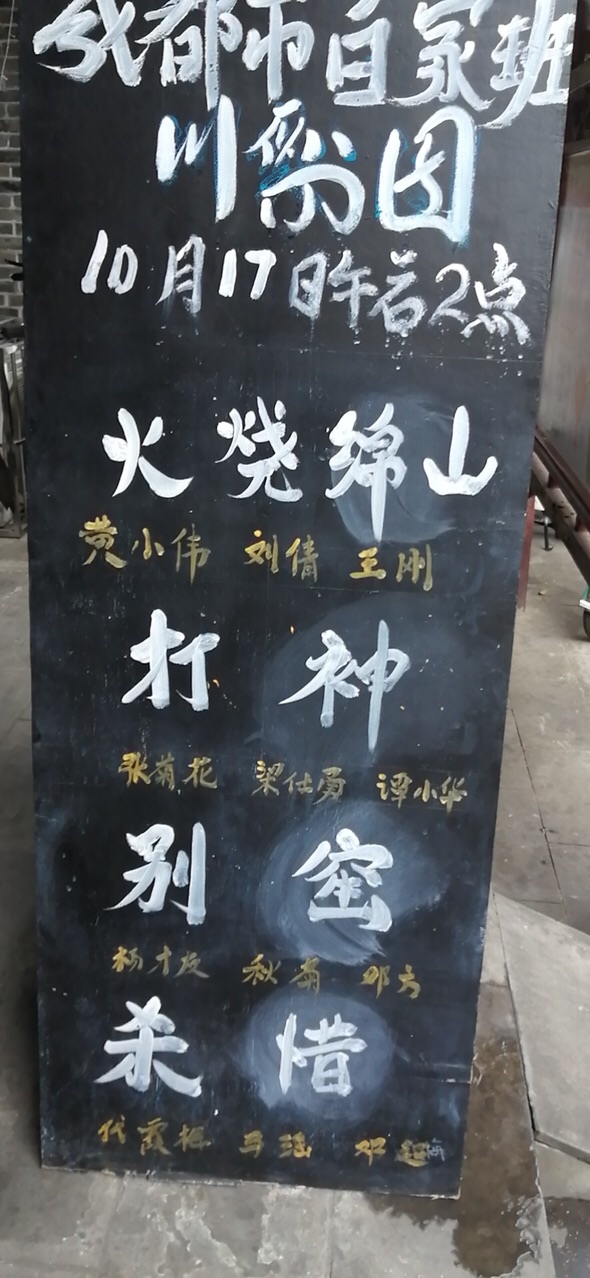 成都市百家班
川剧团
10月17日午后2点
火烧绵山
黄小伟 刘倩 王刚
打神
张菊花 梁仕勇 谭小华
别窑
杨才友 秋菊 邓方
杀惜
代霞梅 马瑶 邓超